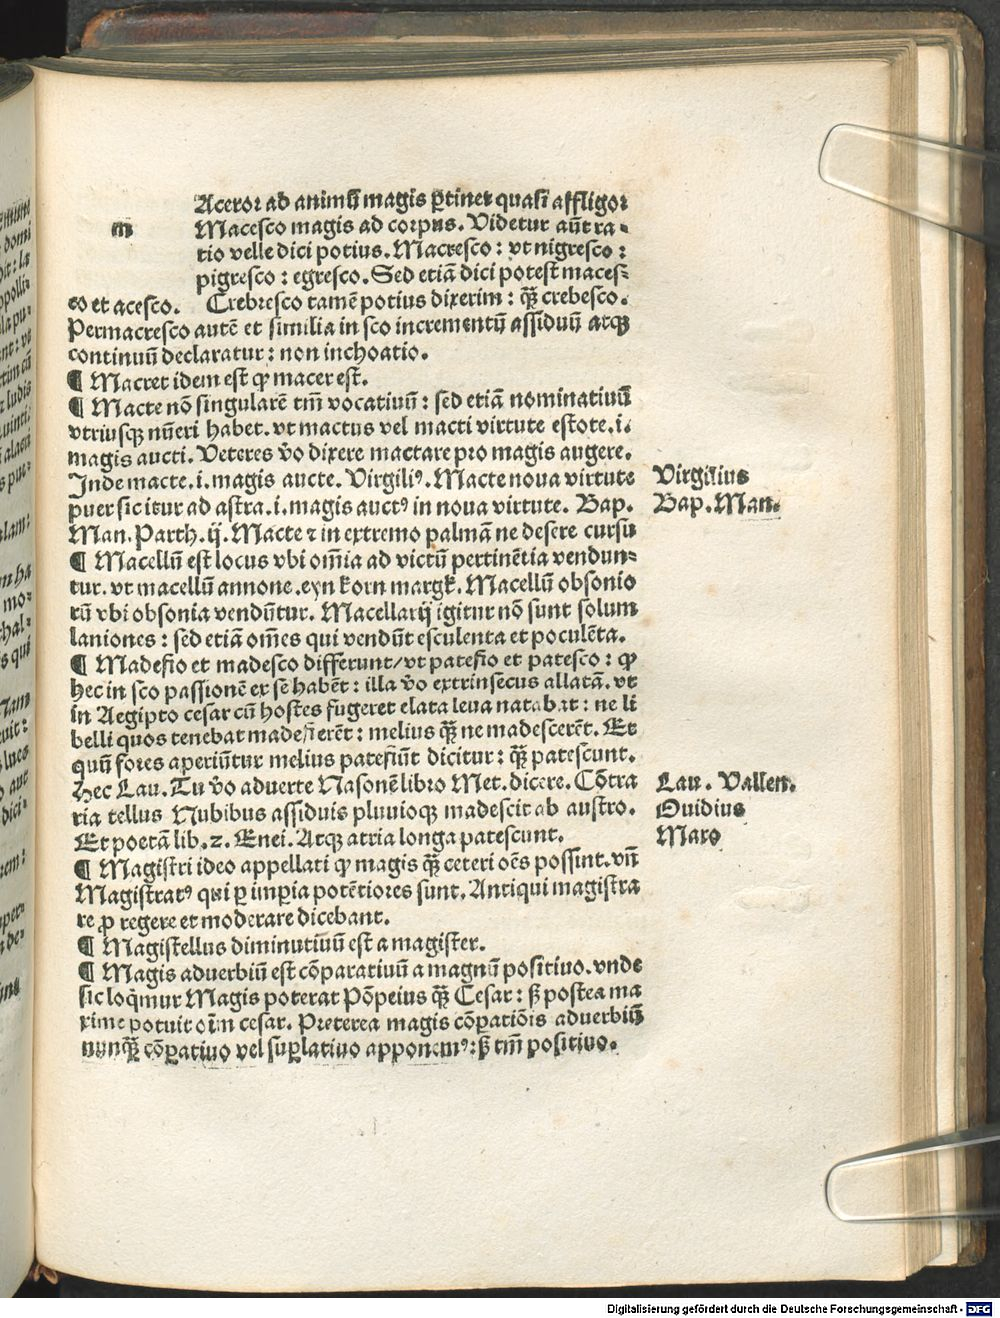 m
Aceror ad animū magis ꝑtinet quasi affligor
Macesco magis ad corpus. Videtur aūt ra-
tio velle dici potius. Macresco: vt nigresco:
pigresco: egresco. Sed etiā dici potest maces-
co et acesco. Crebresco tamē potius dixerim: q̄ꝫ crebesco.
Permacresco autē et similia in sco incrementū assiduū atqꝫ
continuū declaratur: non inchoatio.
¶ Macret idem est qꝫ macer est.
¶ Macte nō singularē tm̄ vocatiuū: sed etiā nominatiuū
vtriusqꝫ nūeri habet. vt mactus vel macti virtute estote. i.
magis aucti. Veteres v̊o dixere mactare pro magis augere.
Inde macte. i. magis aucte. Virgiliꝰ. Macte noua virtute
puer sic itur ad astra. i. magis auctꝰ in noua virtute. Bap.
Man. Parth. ij. Macte ⁊ in extremo palmā ne desere cursu
¶ Macellū est locus vbi om̄ia ad victū pertinētia vendun-
tur. vt macellū annone. eyn korn margk. Macellū obsonio
rū vbi obsonia vendūtur. Macellarij igitur nō sunt solum
laniones: sed etiā om̄es qui vendūt esculenta et poculēta.
¶ Madefio et madesco differunt/ vt patefio et patesco: qꝫ
hec in sco passionē ex se habēt: illa v̊o extrinsecus allatā. vt
in Aegipto cesar cū hostes fugeret elata leua natabat: ne li
belli quos tenebat madefierēt: melius q̄ꝫ ne madescerēt. Et
quū fores aperiūtur melius patefiūt dicitur: q̄ꝫ patescunt.
Hec Lau. Tu v̊o aduerte Nasonē libro Met. dicere. Cōtra
ria tellus Nubibus assiduis pluuioqꝫ madescit ab austro.
Et poetā lib. 2. Enei. Atqꝫ atria longa patescunt.
¶ Magistri ideo appellati qꝫ magis q̄ꝫ ceteri oēs possint. vñ
Magistratꝰ qui ꝑ imꝑia potētiores sunt. Antiqui magistra
re ꝓ regere et moderare dicebant.
¶ Magistellus diminutiuū est a magister.
¶ Magis aduerbiū est cōparatiuū a magnū positiuo. vnde
sic loq̄mur Magis poterat Pōpeius q̄ꝫ Cesar: sꝫ postea ma
xime potuit oīm cesar. Preterea magis cōꝑatiōis aduerbiū
nunq̄ꝫ cōꝑatiuo vel suꝑlatiuo apponemꝰ: sꝫ tm̄ positiuo.
Virgilius
Bap. Man.
Lau. Vallen.
Ouidius
Maro
Digitalisierung gefördert durch die Deutsche Forschungsgemeinschaft - DFG